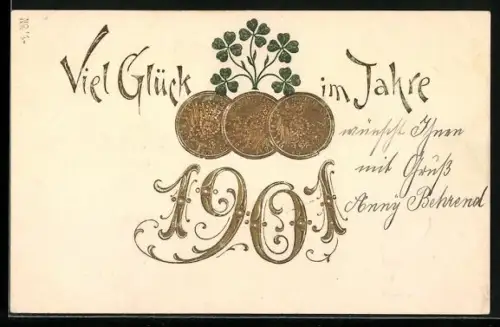 Viel Glück im Jahre
1901
wünscht Ihnen
mit Gruß
Anny Behrend